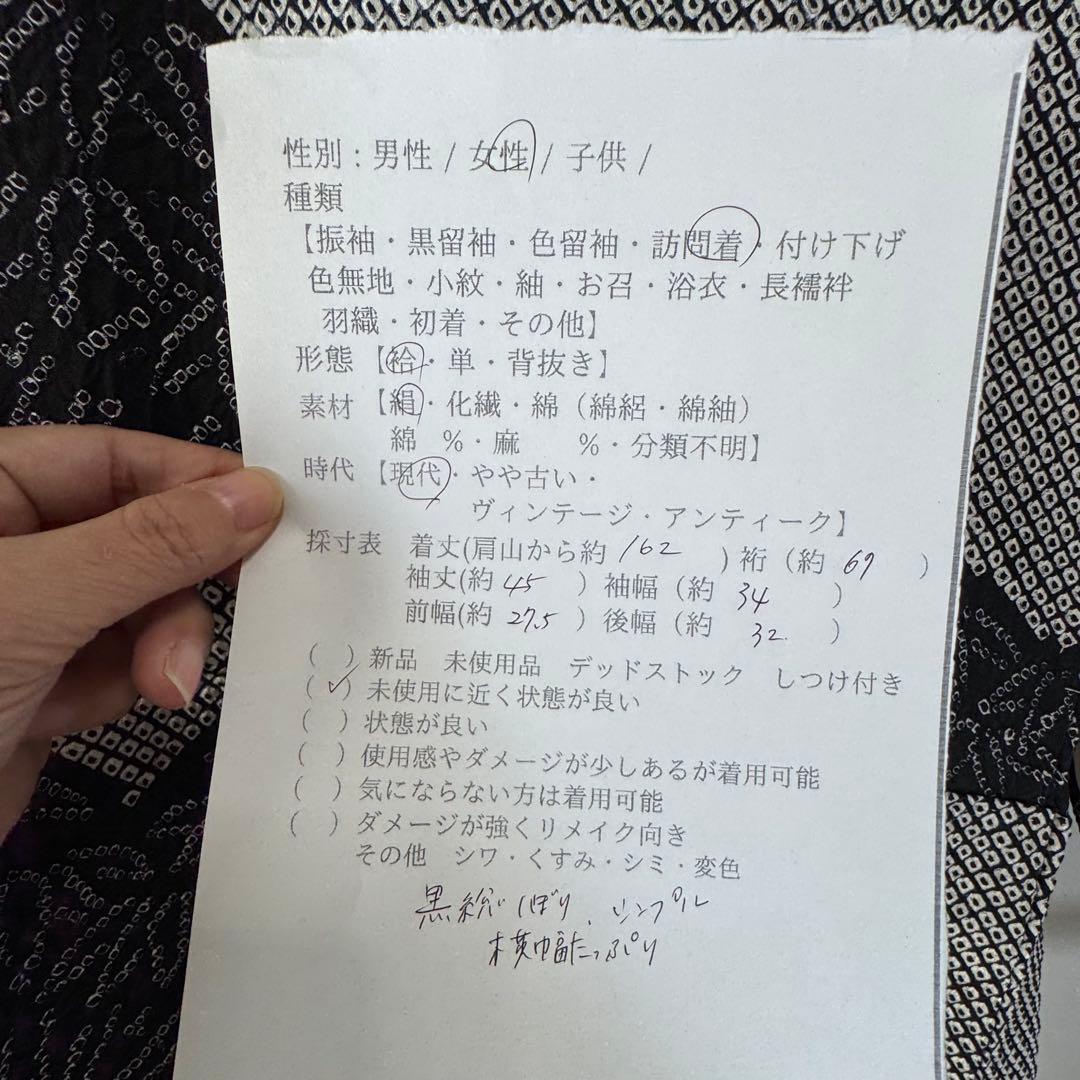 性別：男性 / 女性 / 子供 /
種類
【振袖・黒留袖・色留袖・訪問着・付け下げ
色無地・小紋・紬・お召・浴衣・長襦袢
羽織・初着・その他】
形態【袷・単・背抜き】
素材【絹・化繊・綿（綿絽・綿紬）
綿　％・麻　　％・分類不明】
時代【現代・やや古い・
ヴィンテージ・アンティーク】
採寸表　着丈(肩山から約 162 ) 裄（約 69 ）
袖丈(約 45 ）袖幅（約 34 ）
前幅(約 27.5 ）後幅（約 32. ）
(　) 新品　未使用品　デッドストック　しつけ付き
(✓) 未使用に近く状態が良い
(　) 状態が良い
(　) 使用感やダメージが少しあるが着用可能
(　) 気にならない方は着用可能
(　) ダメージが強くリメイク向き
その他　シワ・くすみ・シミ・変色
黒総しぼり、シンプル
横巾福たっぷり